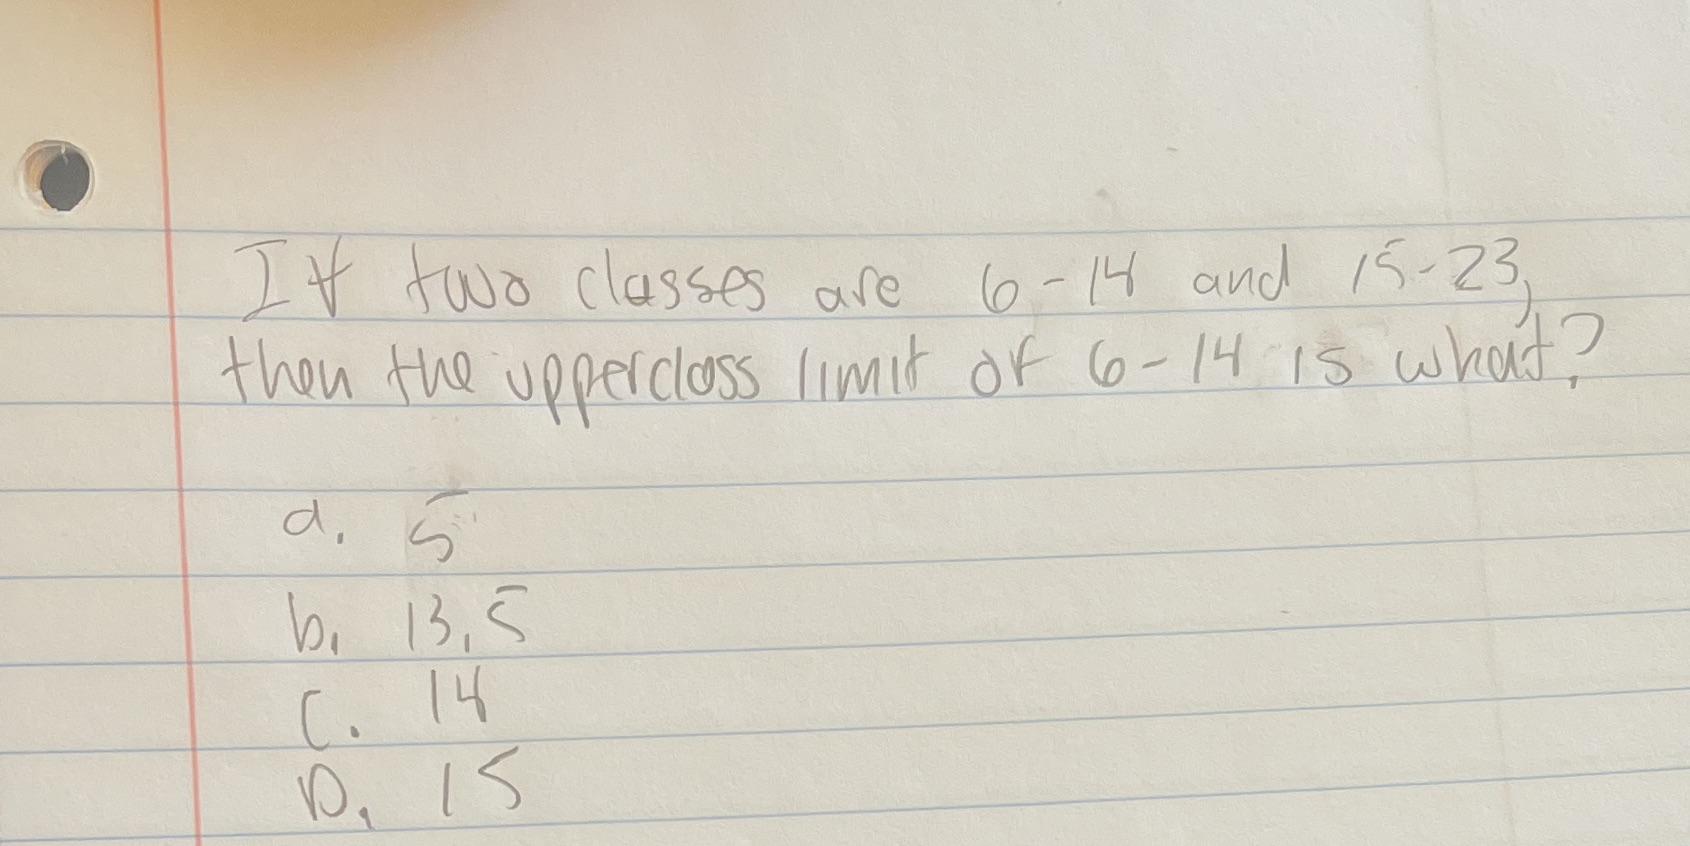 If two classes are 6-14 and 15-23,
then the upperclass limit of 6-14 is what?
a. 5
b. 13.5
C. 14
D. 15